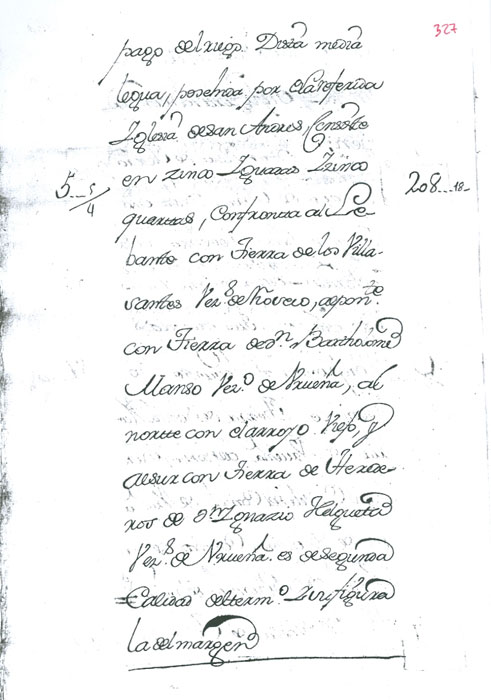 327
pago del viejo. Dista media
legua, posehida por la referida
Iglesia de San Andres, Consiste
en zinco Iguadas I zinco
5 5/4
208..18
quartas, Confronta al Le-
bante con Tierra de los Villa-
santes Vez.s de ponte.
con Tierra de d.n Bartholome
Manso Vez.o de Urueña, al
norte con el arroyo Viejo, y
al sur con Tierra de Herede-
ros de d.n Ignazio Helgueta
Vez.s de Urueña. es de segunda
Calidad del term.o Zirifigura
la del margen